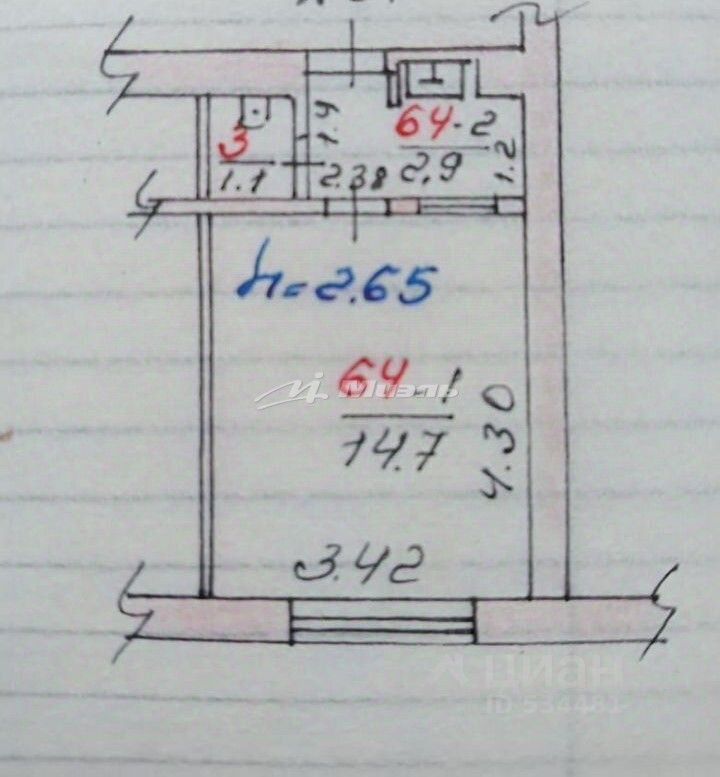 64-2
2,9
1.4
1.2
3
1.1
2.38
h=2.65
64-1
14.7
Миэль
4.30
3.42
циан
ID 534481